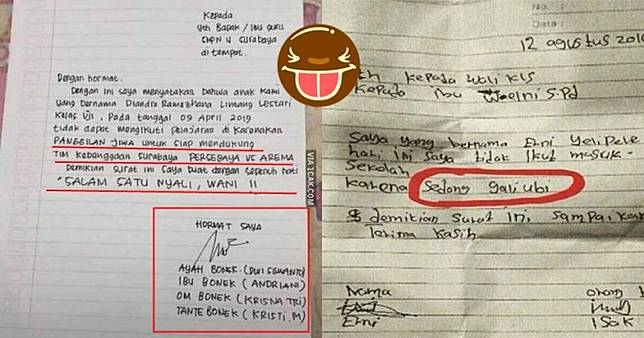 Kepada
Yth Bapak / Ibu Guru
SMPN 4 Surabaya
di tempat.
Dengan hormat.
Dengan ini saya menyatakan bahwa anak kami
yang bernama Diandra Ramazhana Lintang Lestari
Kelas VII, Pada tanggal 09 April 2019
tidak dapat mengikuti pelajaran di karenakan
PANGGILAN JIWA untuk siap mendukung
TIM Kebanggaan Surabaya PERSEBAYA VS AREMA
Demikian surat ini saya buat dengan sepenuh hati
"SALAM SATU NYALI, WANI !!
HORMAT SAYA
AYAH BONEK (DWI SISWANTO)
IBU BONEK (ANDRIANI)
OM BONEK (KRISNA TRI)
TANTE BONEK (KRISTI.M)
VIA 1CAK.COM
No. :
Date :
12 agustus 201
kepada wali kls
kepada ibu S.Pd
Saya yang bernama Erni Yelipele
hari ini saya tidak ikut masuk
Sekolah
karena Sedang gali ubi
demikian surat ini, sampai
terima kasih
Nama
orang
Erni
Isak